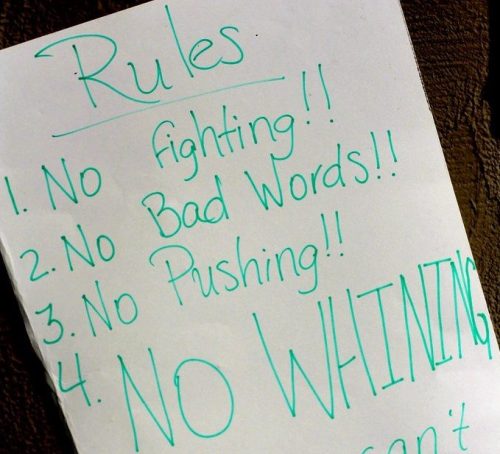 Rules
1. No fighting!!
2. No Bad Words!!
3. No Pushing!!
4. NO WHINING